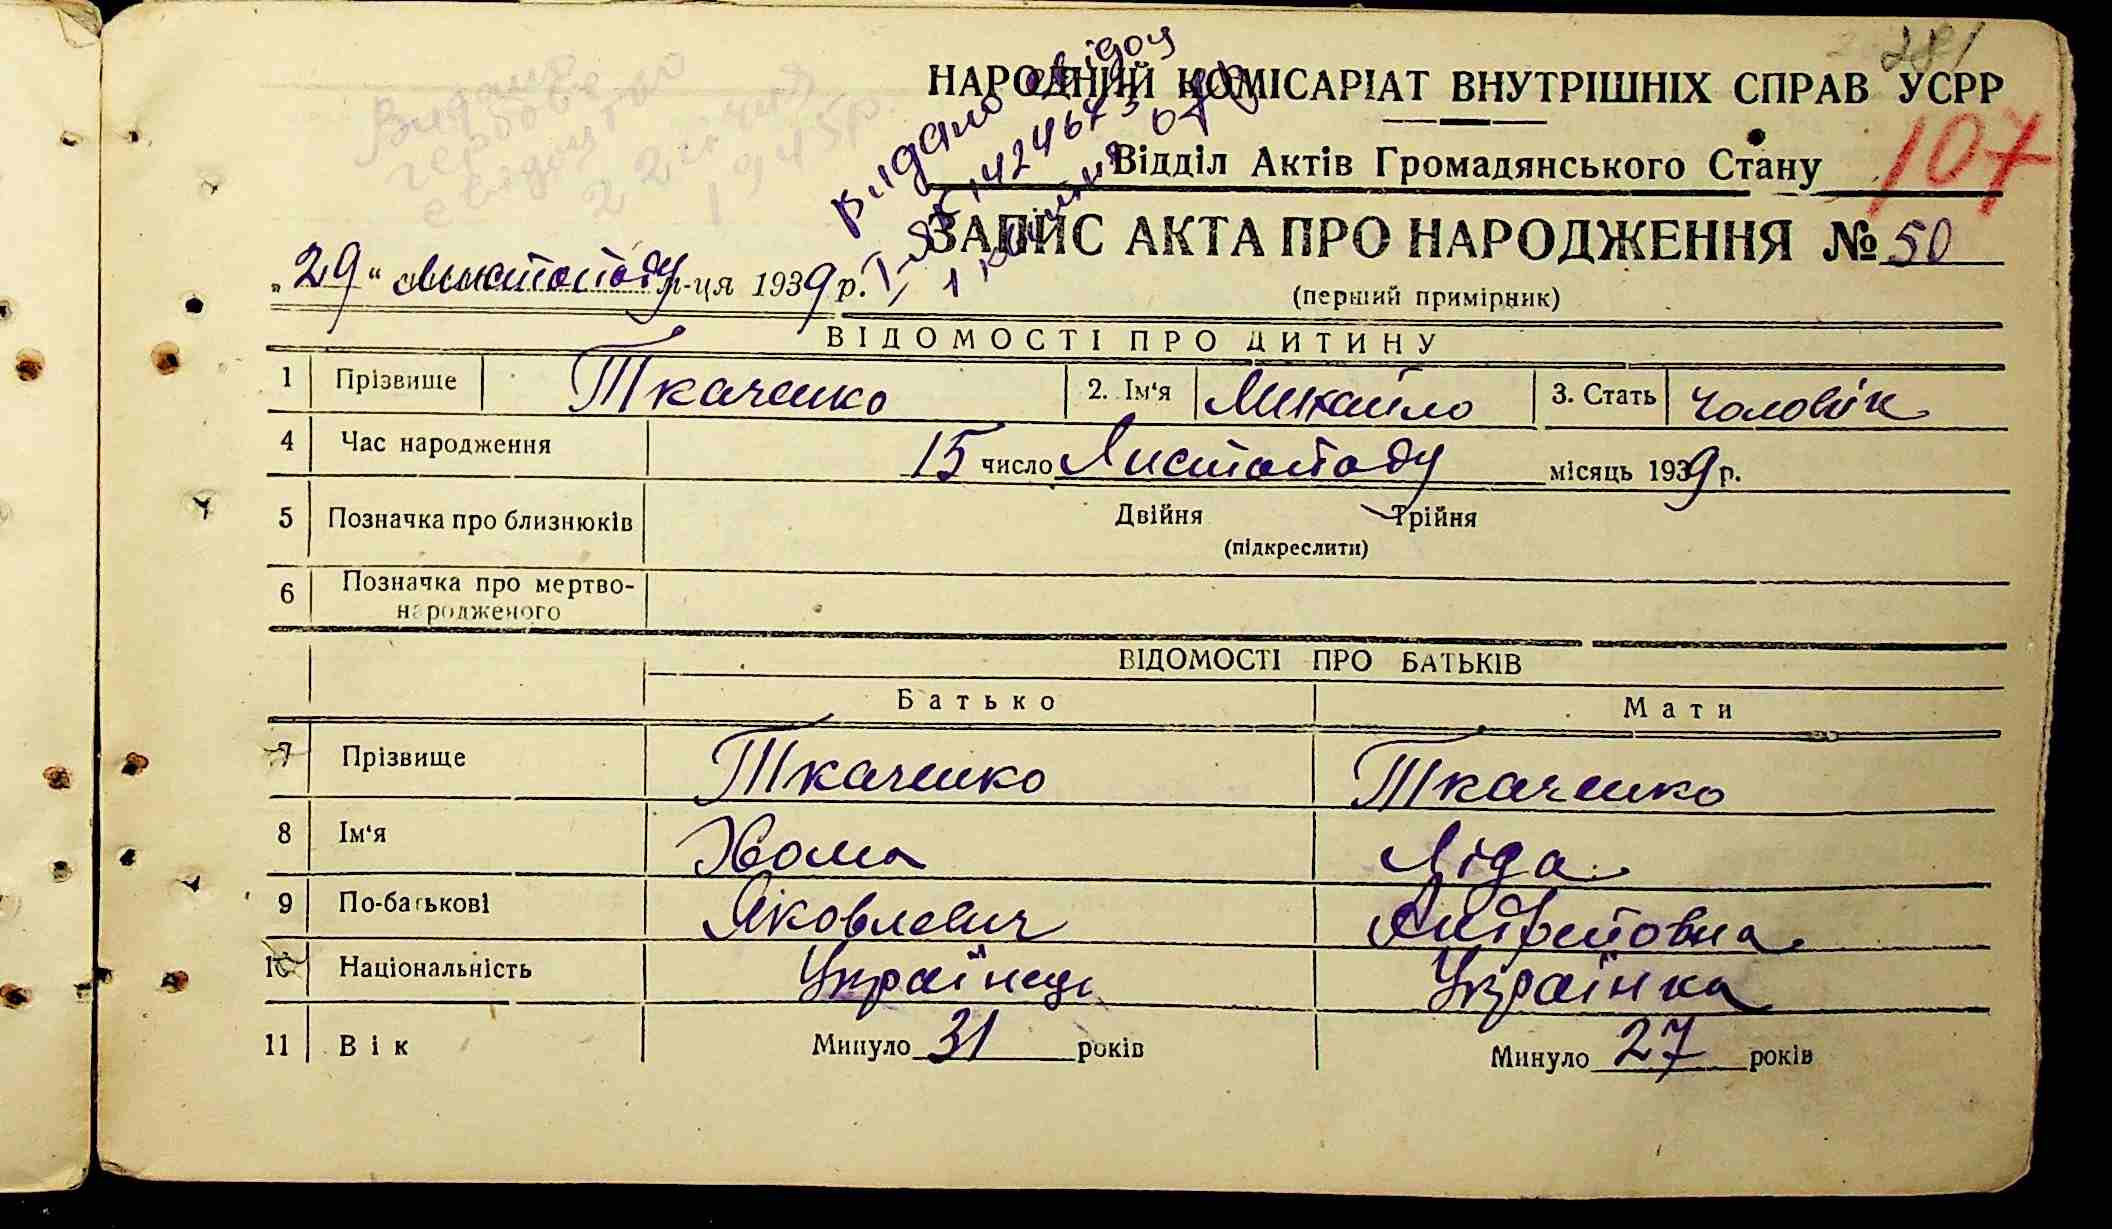 281
НАРОДНИЙ КОМІСАРІАТ ВНУТРІШНІХ СПРАВ УСРР
107
Відділ Актів Громадянського Стану
Видано свідоц
ЗАПИС АКТА ПРО НАРОДЖЕННЯ № 50
„29“ Листопаду м-ця 1939 р.
(перший примірник)
ВІДОМОСТІ ПРО ДИТИНУ
1 Прізвище Ткаченко 2. Ім‘я Михайло 3. Стать чоловік
4 Час народження 15 число Листопаду місяць 1939 р.
5 Позначка про близнюків Двійня Трійня
(підкреслити)
6 Позначка про мертво-
народженого
ВІДОМОСТІ ПРО БАТЬКІВ
Батько Мати
7 Прізвище Ткаченко Ткаченко
8 Ім‘я Хома Ліда
9 По-батькові Яковлевич
10 Національність Українець Українка
11 Вік Минуло 31 років Минуло 27 років